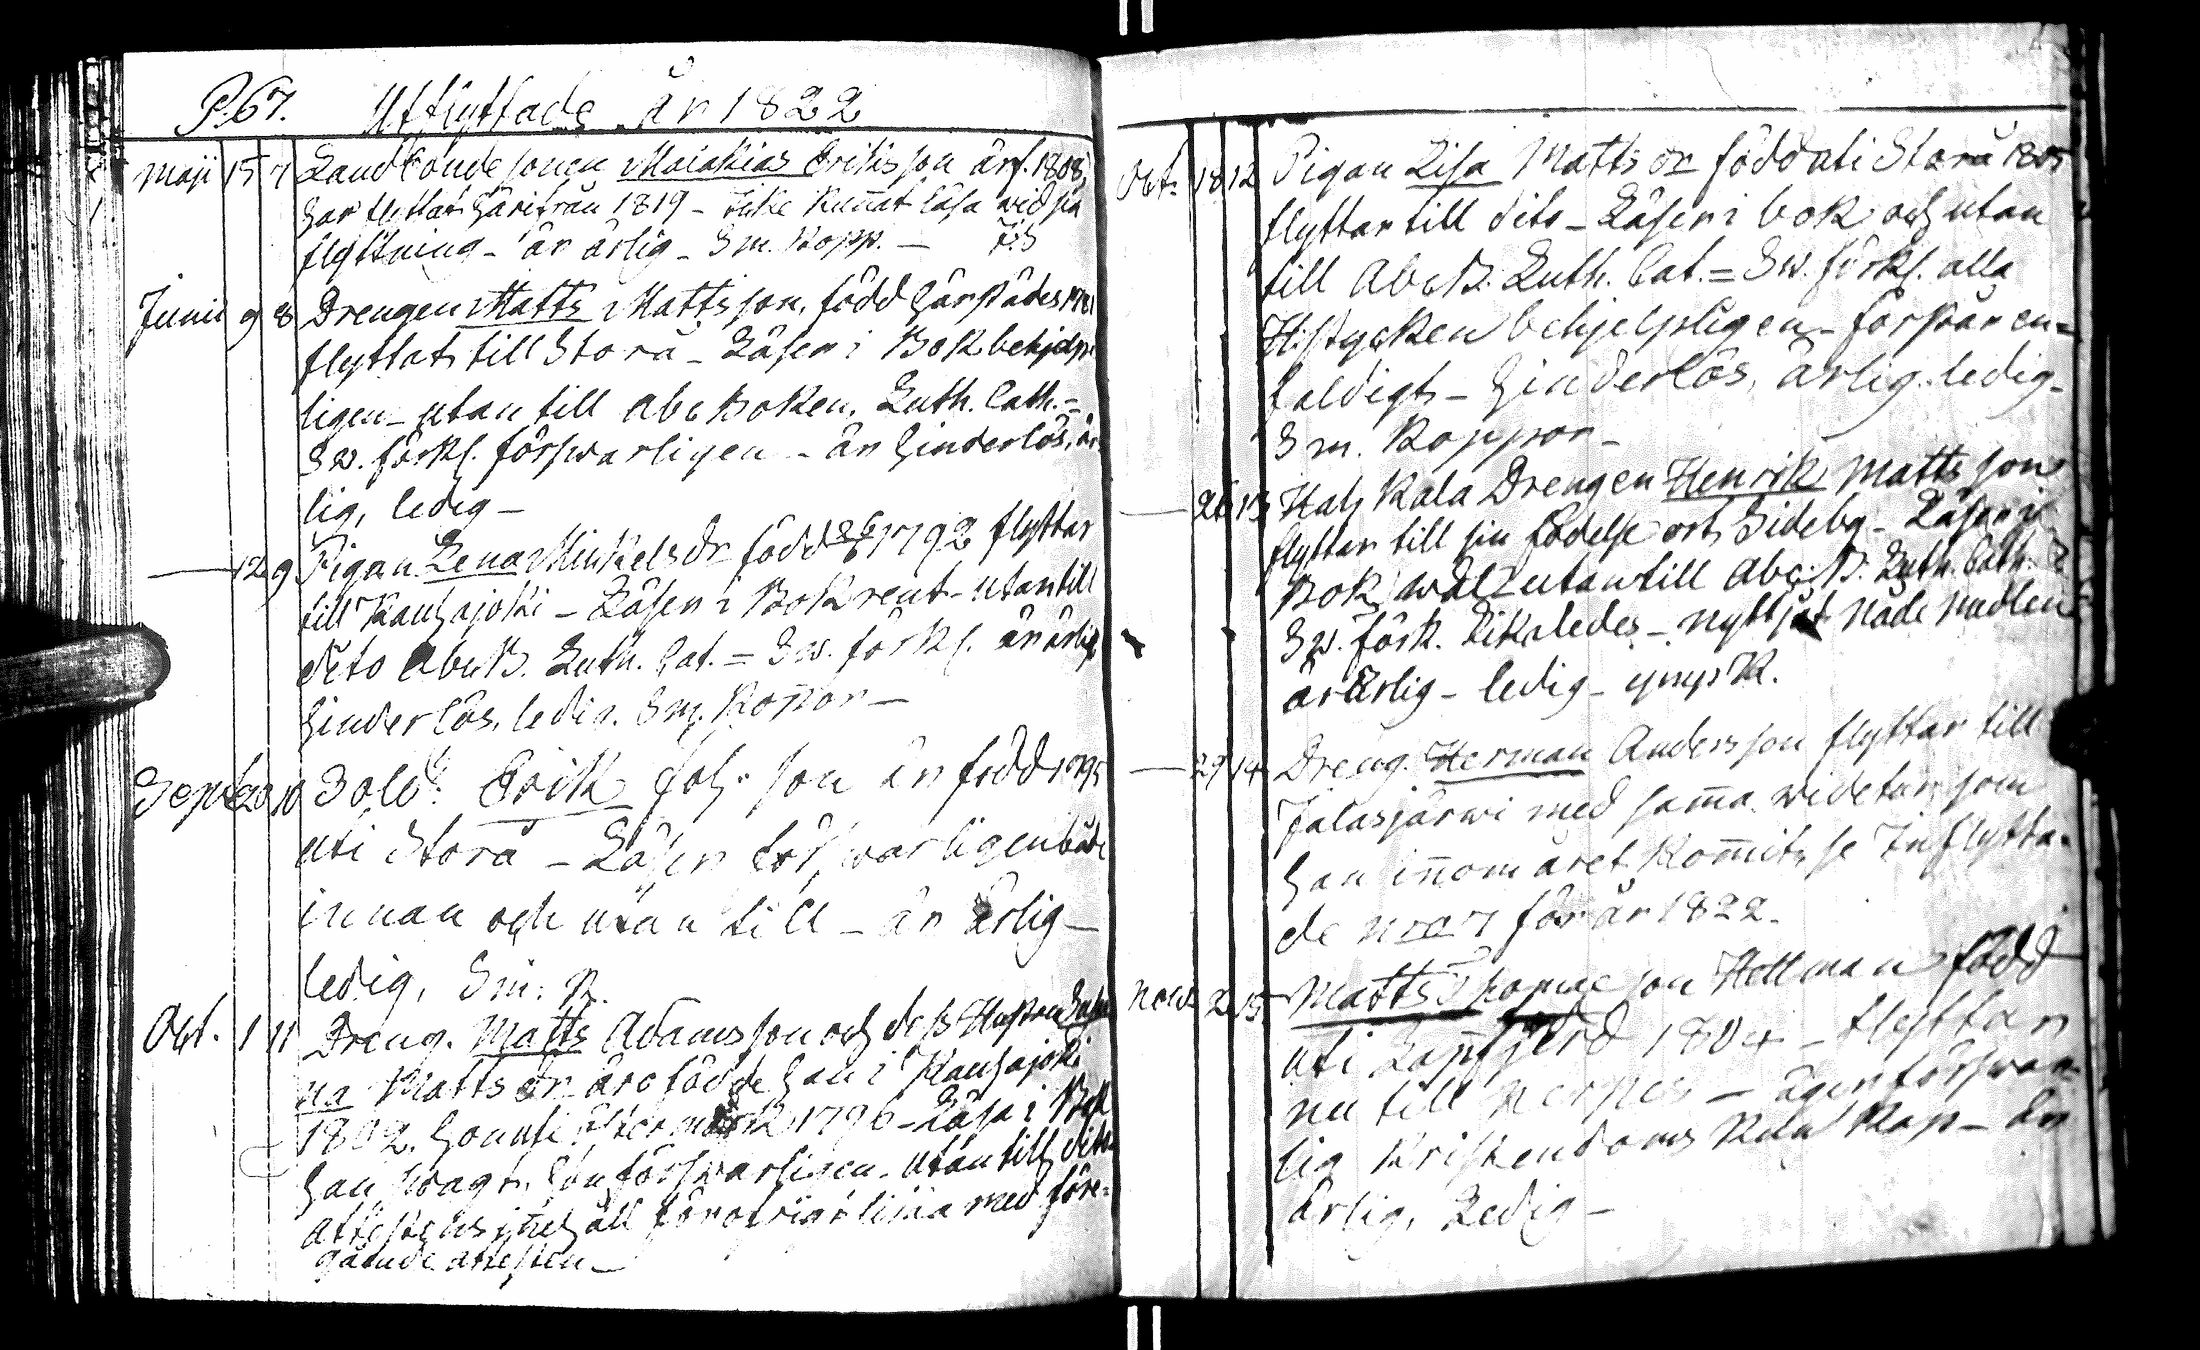 P. 67. Utflyttade år 1822
Maji 15 7 Landbonde sonen Malakias Eriksson är f. 1808,
har flyttat härifrån 1819 - Icke kunnat läsa vid sin
flyttning - är ärlig - Sm. Kopp. -
Junii 9 8 Drengen Matts Mattsson, född härstädes
flyttat till Storå - Läser i Bok behjelp
ligen - utan till Abc Boken, Luth. Cath. =
Sw. förkl. förswarligen - är hinderlös, är
lig, ledig -
— 12 9 Pigan Lena Mickelsdr född 26/6 1792 flyttar
till Kauhajoki - Läser i Bok rent - utantill
dito Abc B. Luth. Cat. = Sw. förkl. är ärlig
hinderlös, ledig. Sm. Koppor -
Sept. 20 10 Sold. Erik Joh. son är född 1795
uti Storå - Läser förswarligen både
innan och utan till - är ärlig -
ledig, Sm: K.
Oct. 1 11 Dreng. Matts Adamsson och dess Hustru
na Mattsdr äro födde han i Kauhajoki
1802, hon uti Östermark 1796 - Läsa i Bok
han swagt, hon förswarligen. utan till
attestens innehåll för öfrigt lika med före-
gående attesten -
Oct. 18 12 Pigan Lisa Mattsdr född uti Storå 1805
flyttar till dito - Läser i bok och utan
till Abc B. Luth. Cat. = Sw. förkl. alla
H. stycken behjelpligen - förstår en-
faldigt - hinderlös, ärlig ledig -
Sm. Koppor -
— 26 13 Drengen Henrik Mattsson
flyttar till sin födelse ort Sideby - Läser i
Bok wäl utantill Abc: B. Luth. Cath.
Sw. förk. Likaledes - nyttjat Nåde medlen
är ärlig - ledig - ymp K.
— 29 14 Dreng. Herman Andersson flyttar till
Jalasjärwi med samma widetur som
han innom året kommit, se Inflytta-
de Nro 7 för år 1822.
Nov. 2 15 Matts Thomasson Hellman född
uti Lappfjerd 1804 - flyttar
nu till Nerpes - äger förswar-
lig Kristendoms Kunskap - är
ärlig, Ledig -